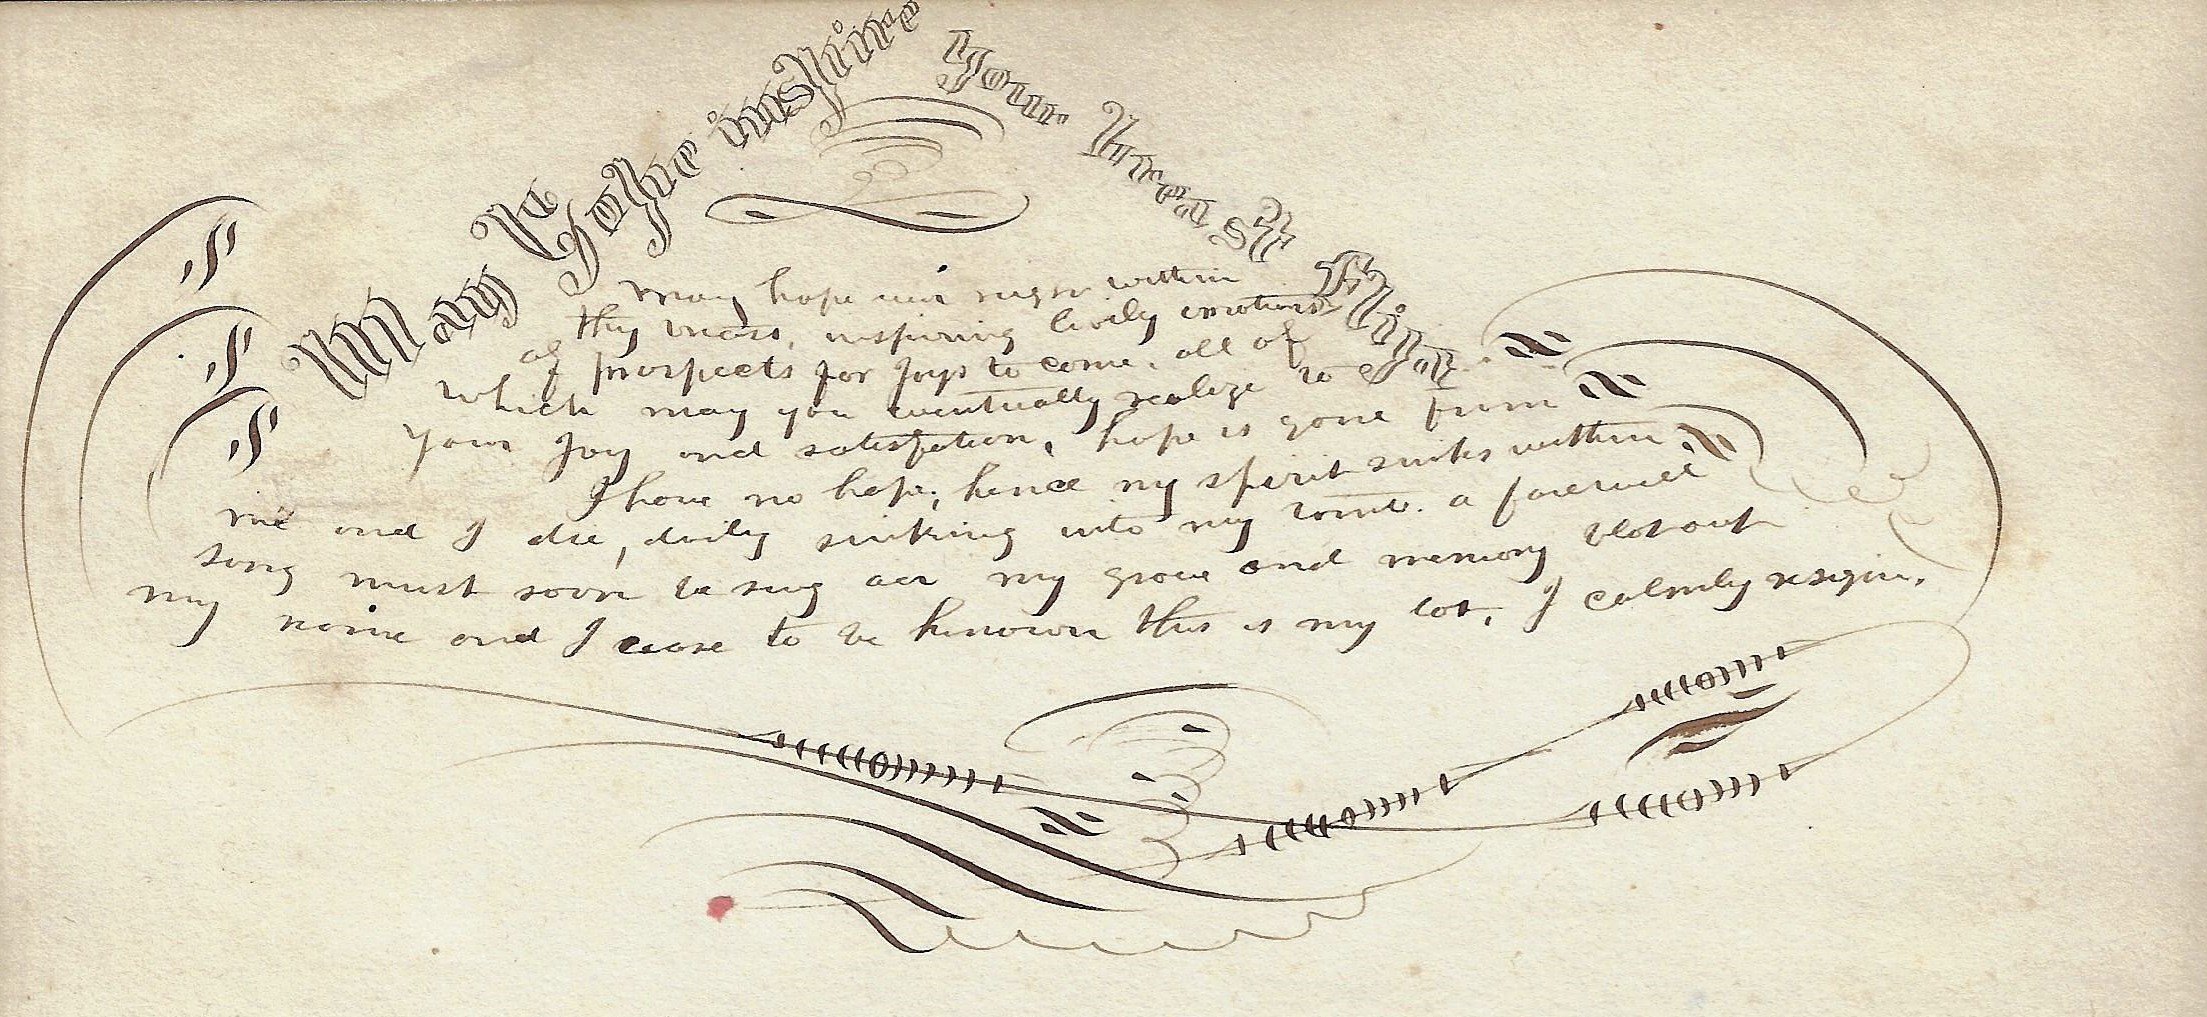 May Hope inspire Your Breast Eliza
may hope ever reign within
thy breast, inspiring lively emotions
of prospects for joys to come. all of
which may you eventually realize to
Your joy and satisfation, hope is gone from
I have no hope; hence my spirit sinks within
me and I die, daily sinking into my tomb. a farewell
song must soon be sung oer my grave and memory blot out
my name and I cease to be known this is my lot, I calmly resign.